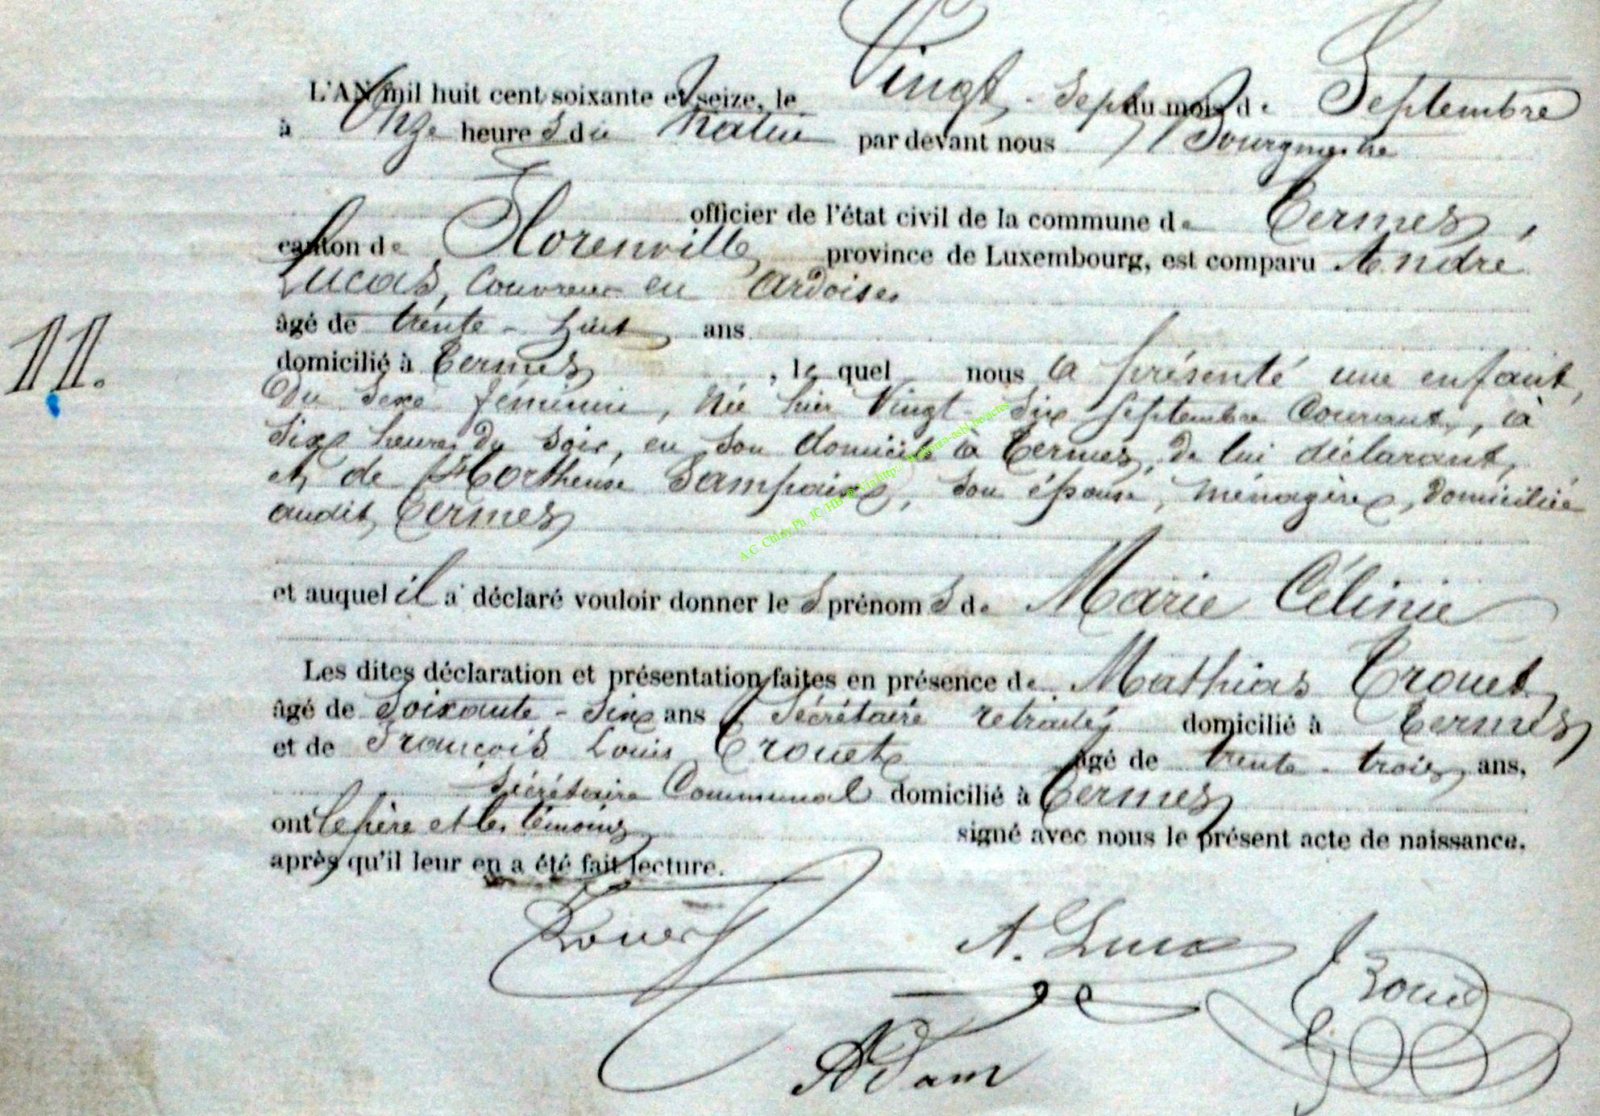 L'AN mil huit cent soixante et seize, le Vingt-Sept du mois de Septembre
à Onze heures du Matin par devant nous Bourgmestre
officier de l'état civil de la commune de Termes,
canton de Florenville, province de Luxembourg, est comparu André
Lucas, Couvreur en Ardoises
âgé de trente-huit ans
domicilié à Termes, lequel nous a présenté une enfant,
Du Sexe féminin, Née hier Vingt-Six Septembre Courant, à
Six heures du Soir, en Son domicile à Termes, de lui déclarant,
et de Hortheuse Sampaix, Son épouse, Ménagère, domiciliée
audit Termes
11.
et auquel il a déclaré vouloir donner les prénoms de Marie Célinie
Les dites déclaration et présentation faites en présence de Mathias Trouet
âgé de Soixante-Six ans, Secrétaire retraité, domicilié à Termes
et de François Louis Trouet âgé de trente-trois ans,
Secrétaire Communal domicilié à Termes
ont le père et les témoins signé avec nous le présent acte de naissance,
après qu'il leur en a été fait lecture.
Trouet A. Lucas Trouet
Adam